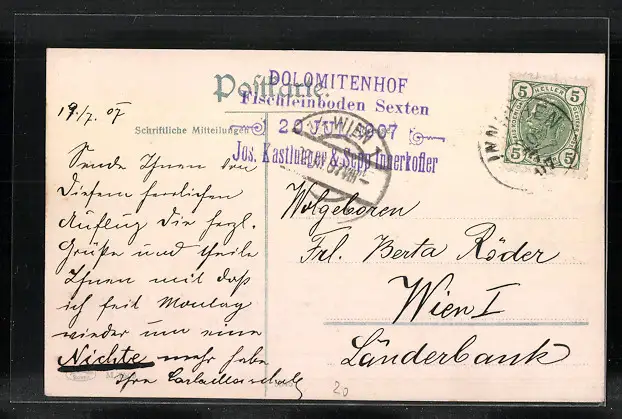 Postkarte
DOLOMITENHOF
Fischleinboden Sexten
20 JULI 1907
Jos. Kastlunger & Sepp Innerkofler
19./7. 07
Schriftliche Mitteilungen
Sende Ihnen von
diesem herrlichen
Ausflug die herzl.
Grüße und theile
Ihnen mit daß
ich seit Montag
wieder um eine
Nichte mehr habe
Ihre
WIEN
5 HELLER 5
5 5
Wolgeboren
Frl. Berta Röder
Wien I
Länderbank
20